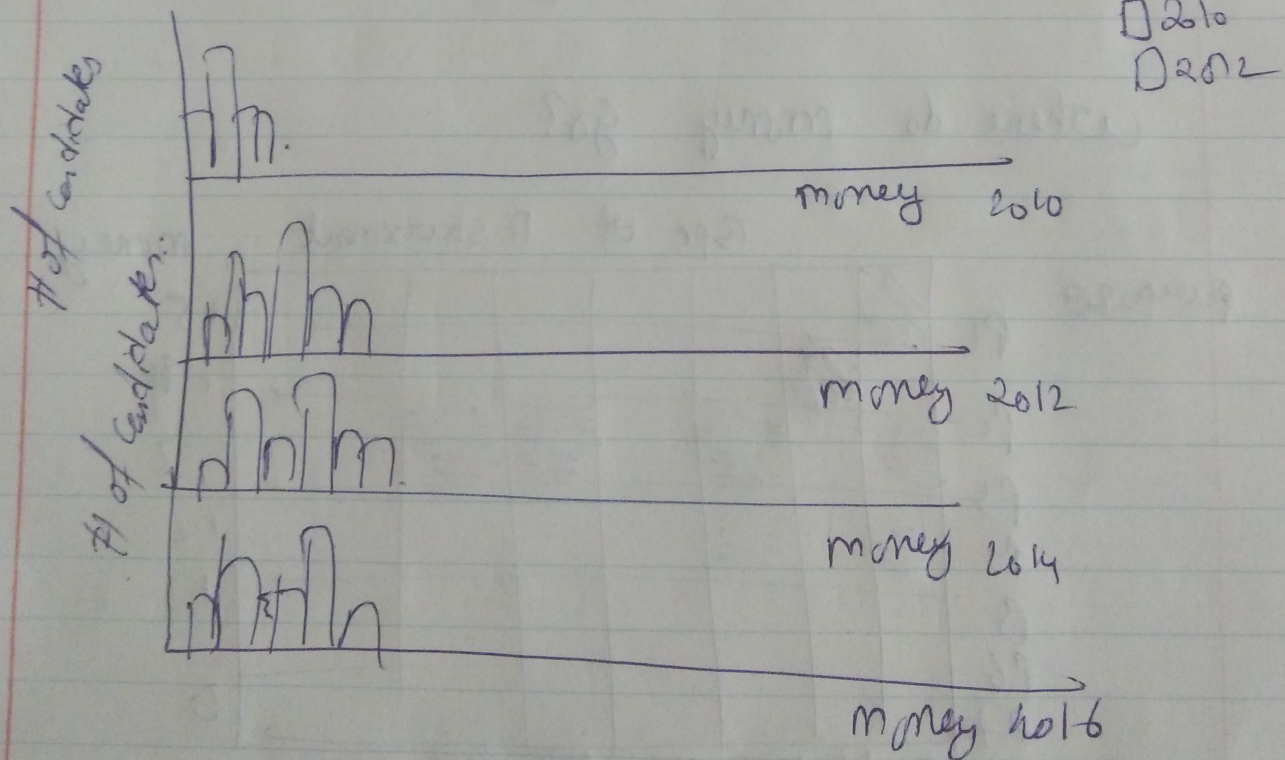 □ 2010
□ 2012
# of Candidates
money 2010
# of Candidates
money 2012
money 2014
# of Candidates
money 2016